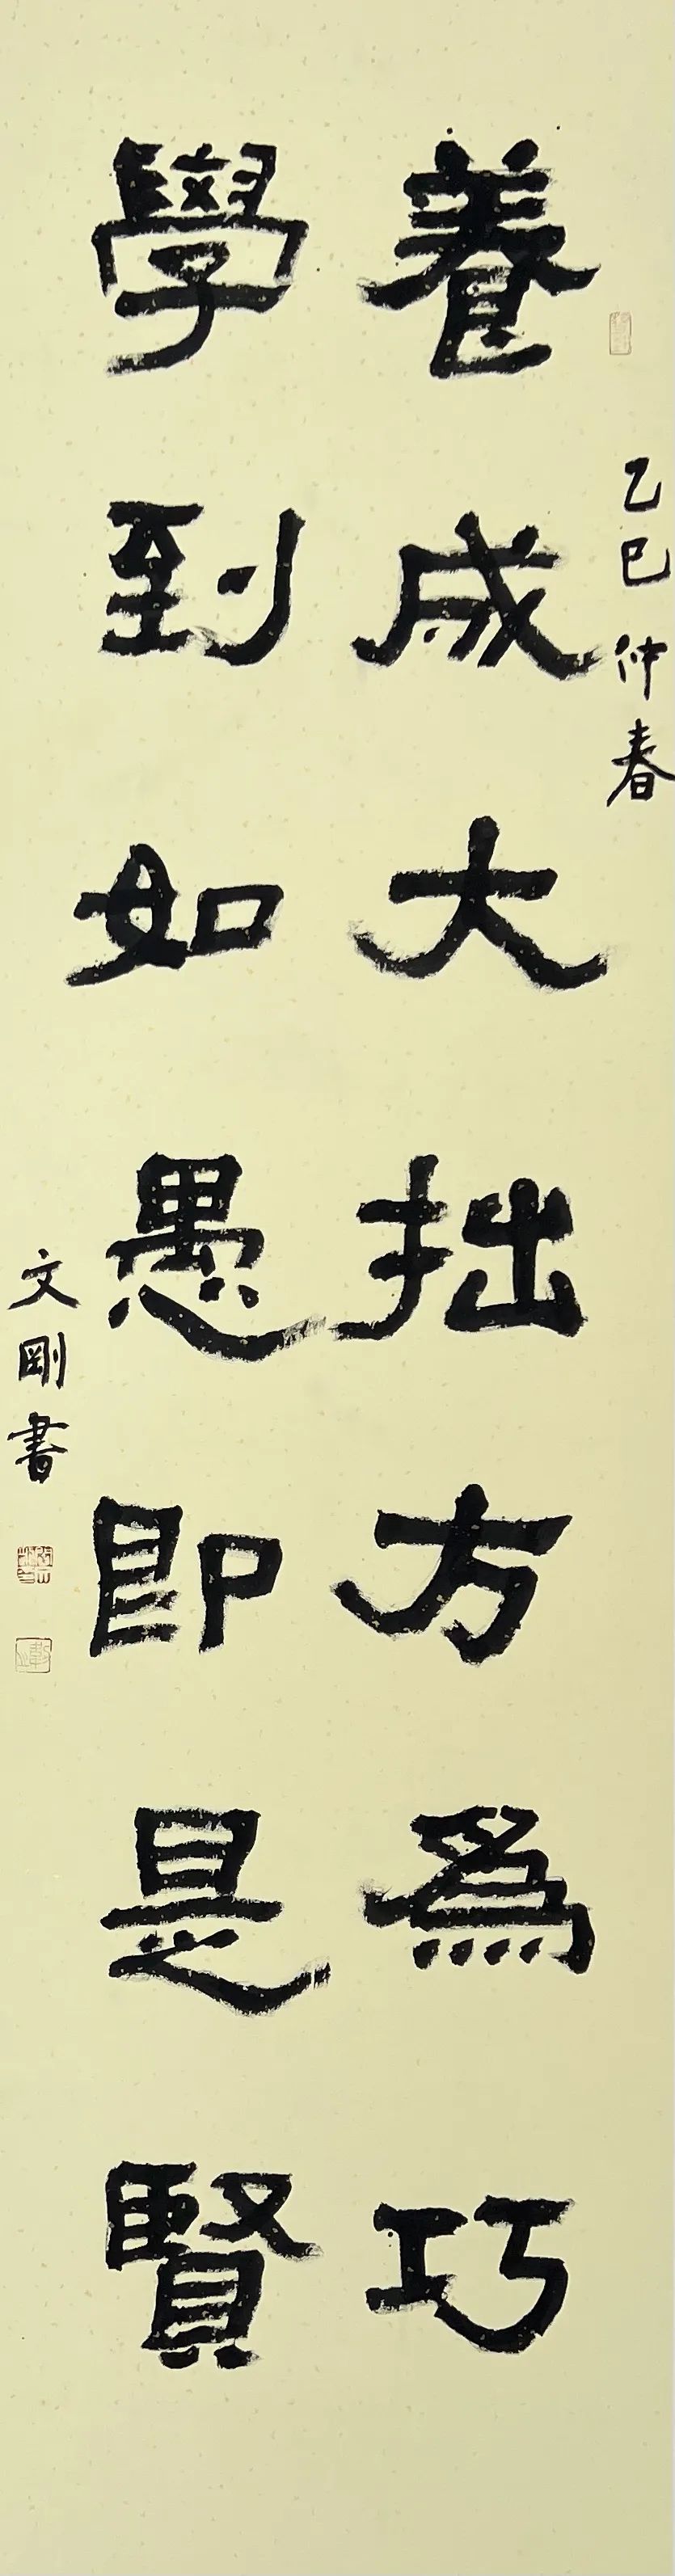 乙巳仲春
養成大拙方為巧
學到如愚即是賢
文剛書